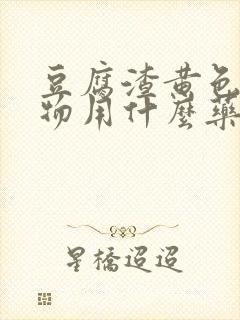 豆腐渣黄色
物用什麼藥
星橋迢迢